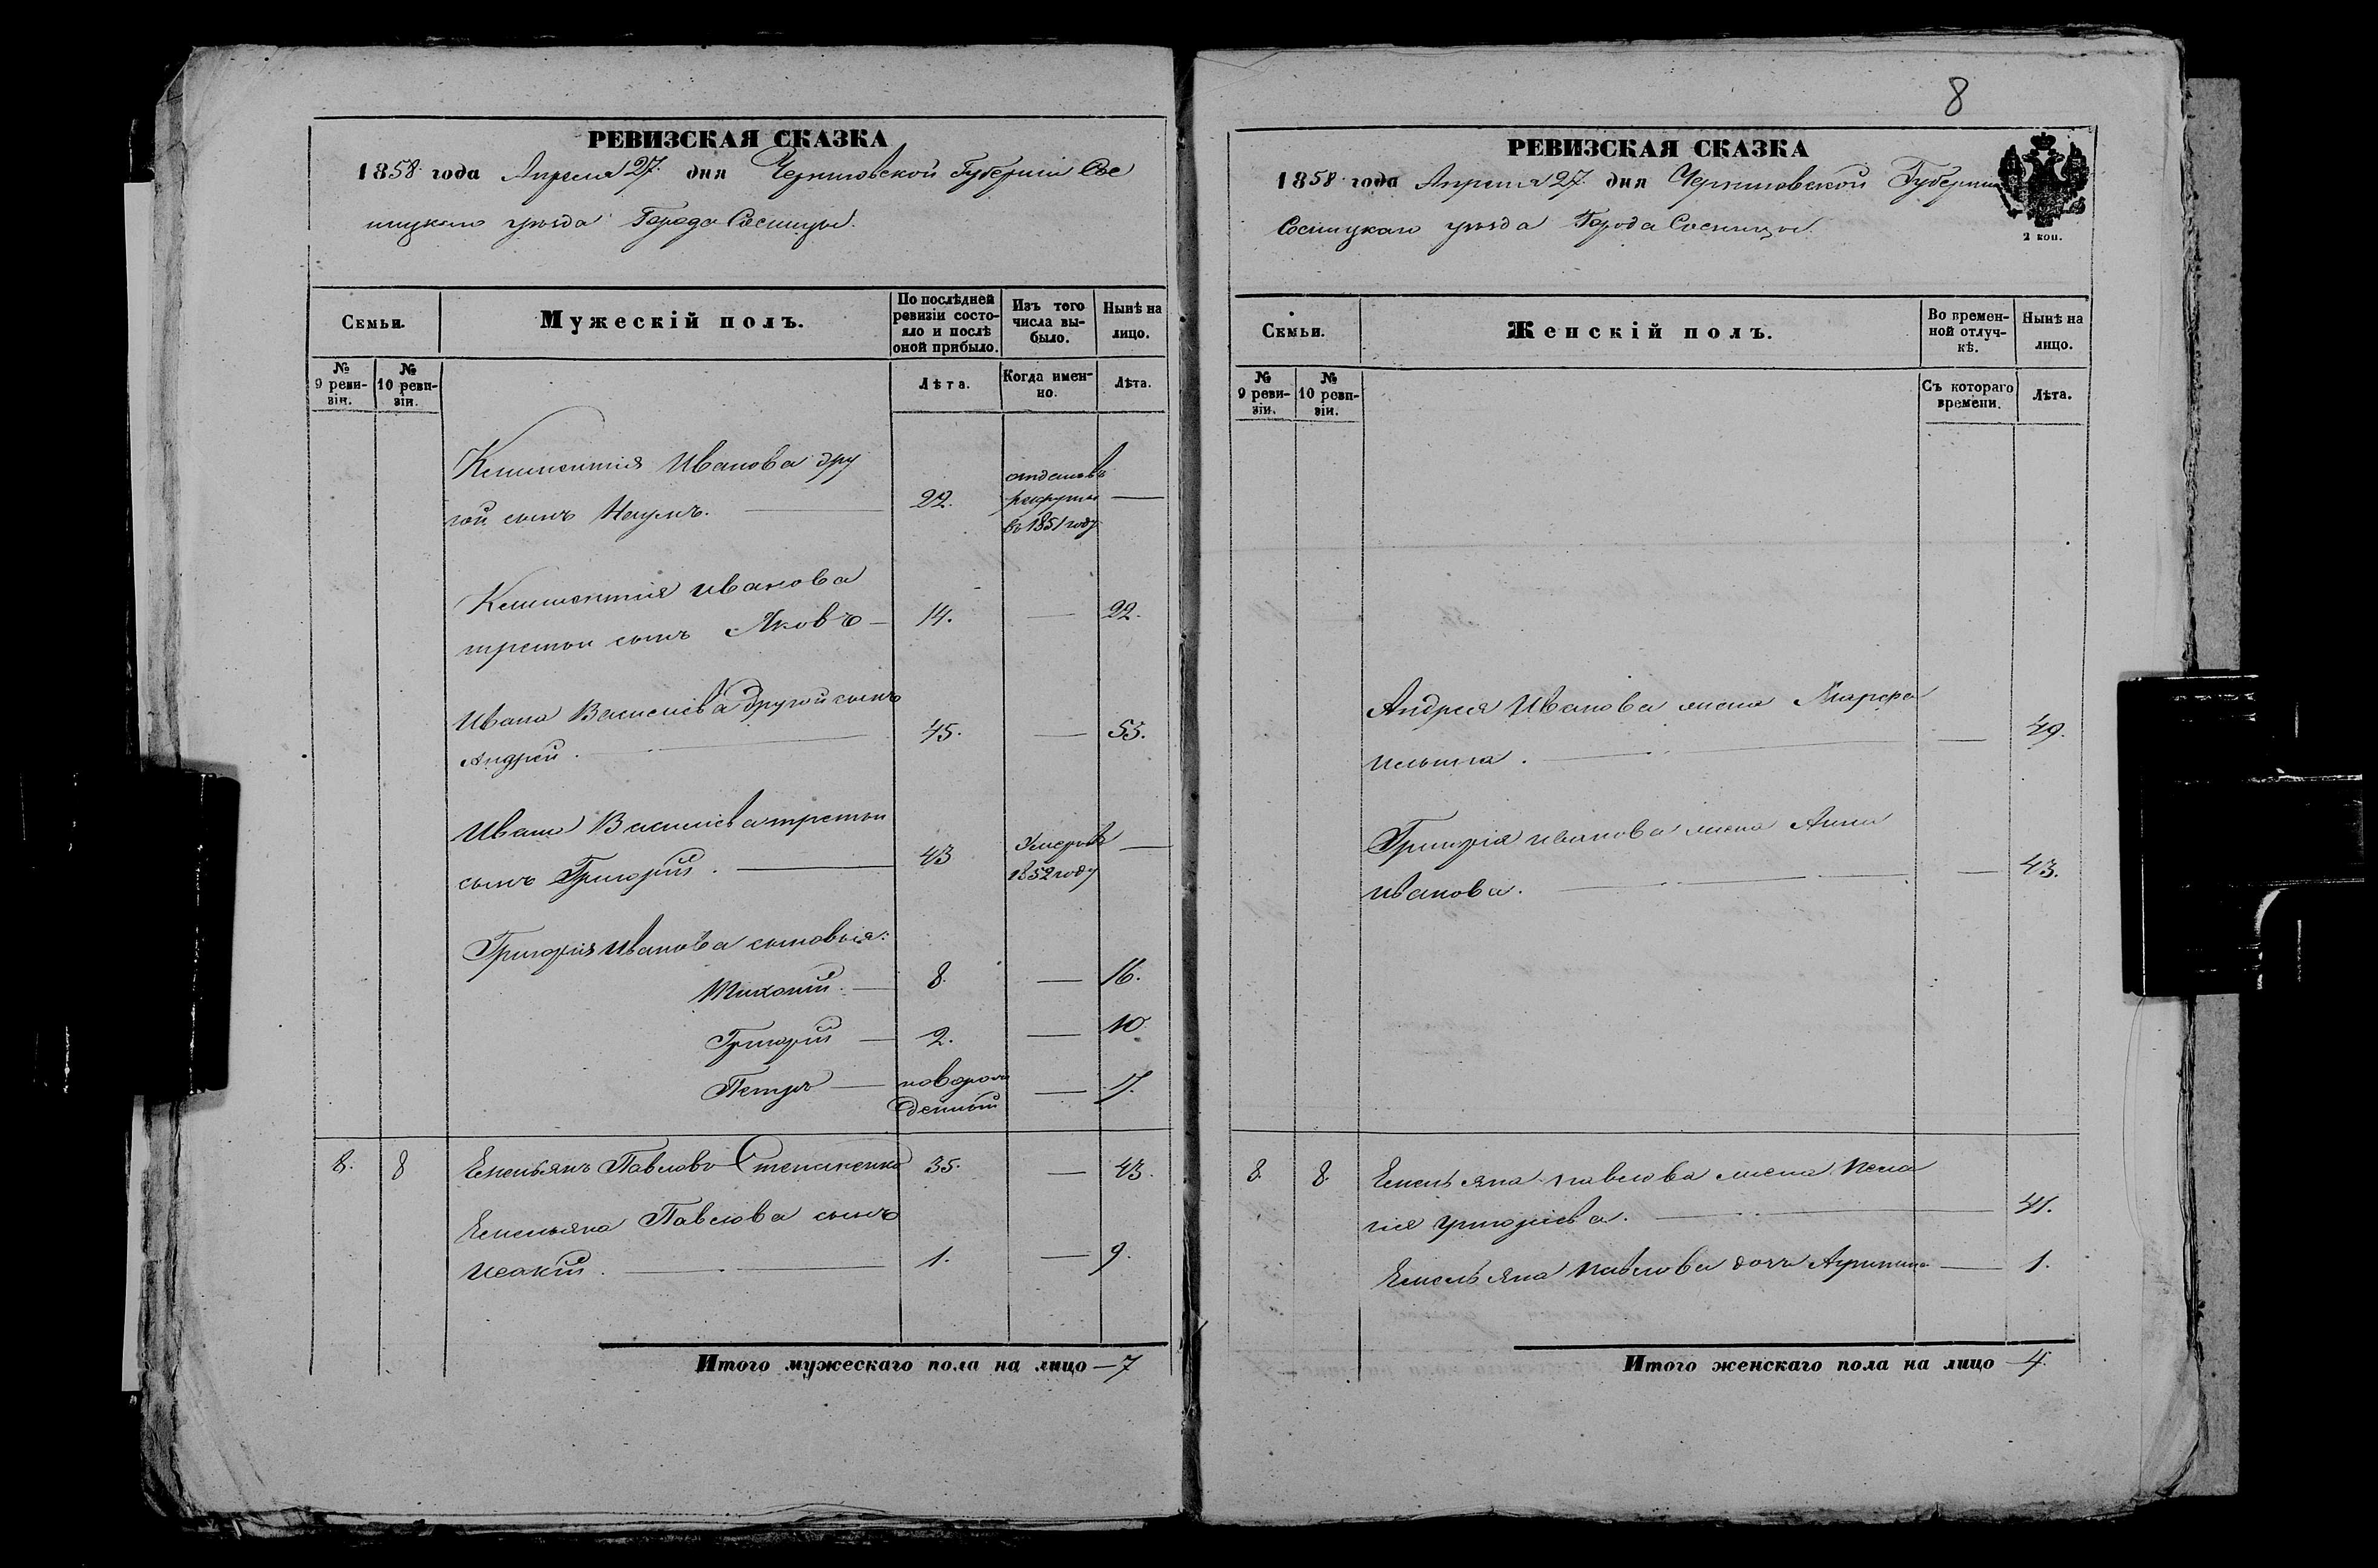 РЕВИЗСКАЯ СКАЗКА
1858 года Апреля 27. дня Черниговской Губернiи Сос
ницкаго уѣзда Города Сосницы.
Семьи.
Мужескiй полъ.
По послѣдней ревизiи состояло и послѣ оной прибыло.
Изъ того числа выбыло.
Нынѣ на лицо.
№ 9 ревизiи.
№ 10 ревизiи.
Лѣта.
Когда именно.
Лѣта.
Иванова дру
гой сынъ Наумъ. 22. отданъ въ рекруты въ 1851 году
Иванова
третiй сынъ Яковъ 14. 22.
Ивана Василiева другой сынъ
Андрей. 45. 53.
Ивана Василiева третiй
сынъ Григорiй. 43 Умеръ въ 1852 году
Григорiя Иванова сыновья:
8. 16.
Григорiй 2. 10
Петръ новорожденный 7.
8. 8 Емельянъ Павловъ Степаненко 35. 43.
Емельяна Павлова сынъ
Исакiй. 1. 9.
Итого мужескаго пола на лицо 7
8
РЕВИЗСКАЯ СКАЗКА
1858 года Апреля 27. дня Черниговской Губернiи
Сосницкаго уѣзда Города Сосницы.
2 коп.
Семьи.
Женскiй полъ.
Во временной отлучкѣ.
Нынѣ на лицо.
№ 9 ревизiи.
№ 10 ревизiи.
Съ котораго времени.
Лѣта.
Андрея Иванова жена Марфа
49.
Григорiя Иванова жена Анна
Иванова. 43.
8. 8. Емельяна Павлова жена Пела
гiя Григорiева. 41.
Емельяна Павлова дочь 1.
Итого женскаго пола на лицо 4.